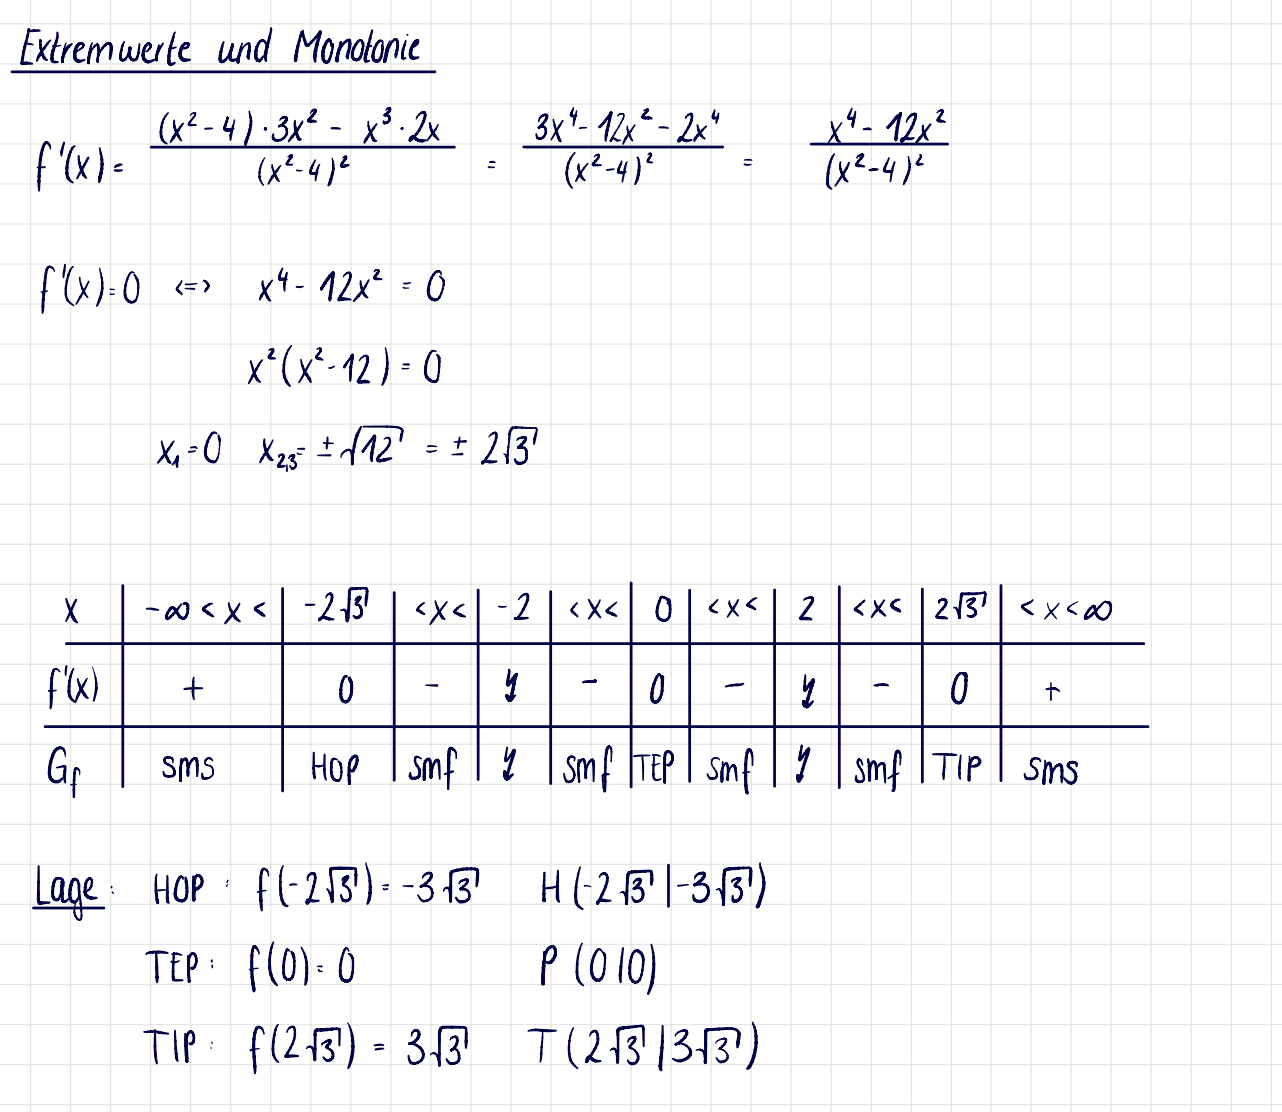 Extremwerte und Monotonie
f'(x) = ((x² - 4) · 3x² - x³ · 2x) / (x² - 4)² = (3x⁴ - 12x² - 2x⁴) / (x² - 4)² = (x⁴ - 12x²) / (x² - 4)²
f'(x) = 0 <=> x⁴ - 12x² = 0
x² (x² - 12) = 0
x₁ = 0 x₂,₃ = ± √12 = ± 2√3
x | -∞ < x < | -2√3 | < x < | -2 | < x < | 0 | < x < | 2 | < x < | 2√3 | < x < ∞
f'(x) | + | 0 | - | | - | 0 | - | | - | 0 | +
G_f | sms | HOP | smf | | smf | TEP | smf | | smf | TIP | sms
Lage: HOP: f(-2√3) = -3√3 H(-2√3 | -3√3)
TEP: f(0) = 0 P (0 | 0)
TIP: f(2√3) = 3√3 T (2√3 | 3√3)